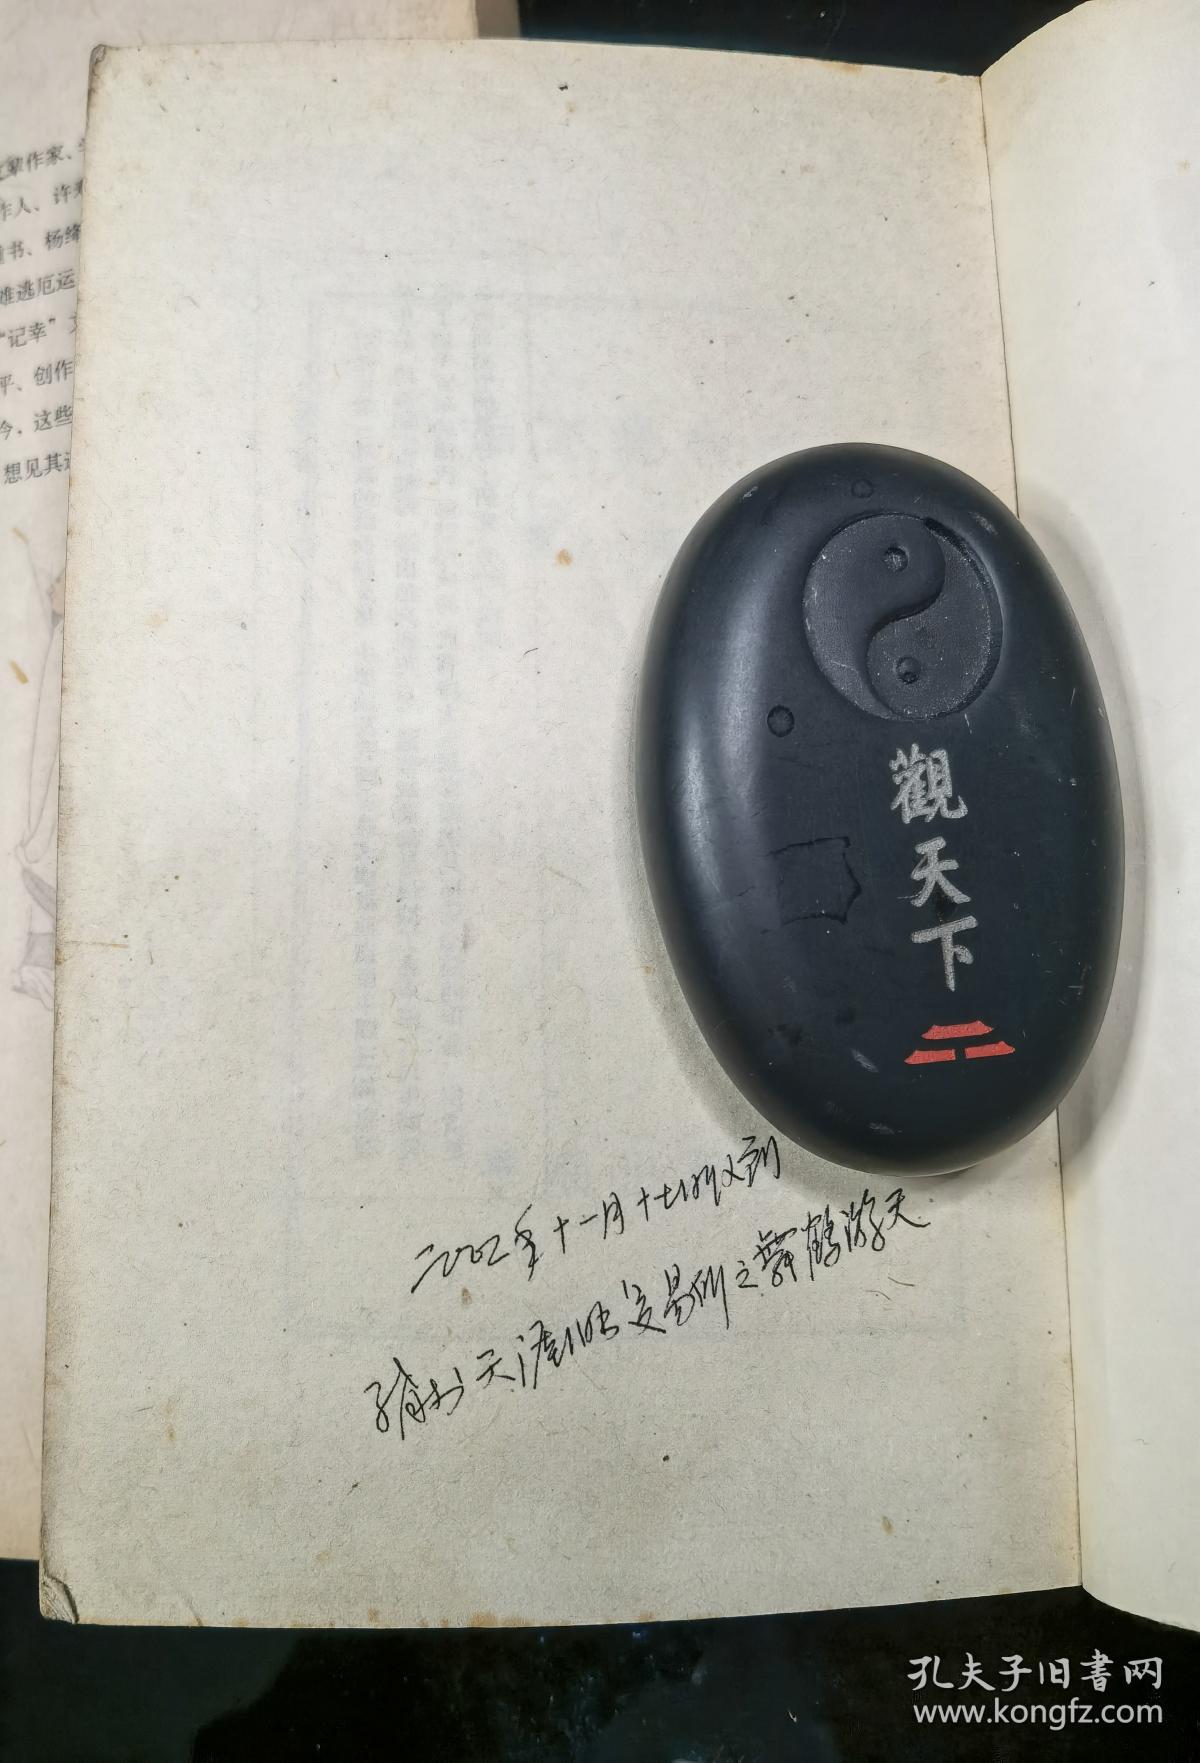 文辈作家、
作人、许寿
书、杨绛
难逃厄运
“记幸”
平、创作
今，这些
想见其
觀天下
二〇〇二年十一月十七日收到
天涯旧书交易所之舞鹤游天
孔夫子旧書网
www.kongfz.com